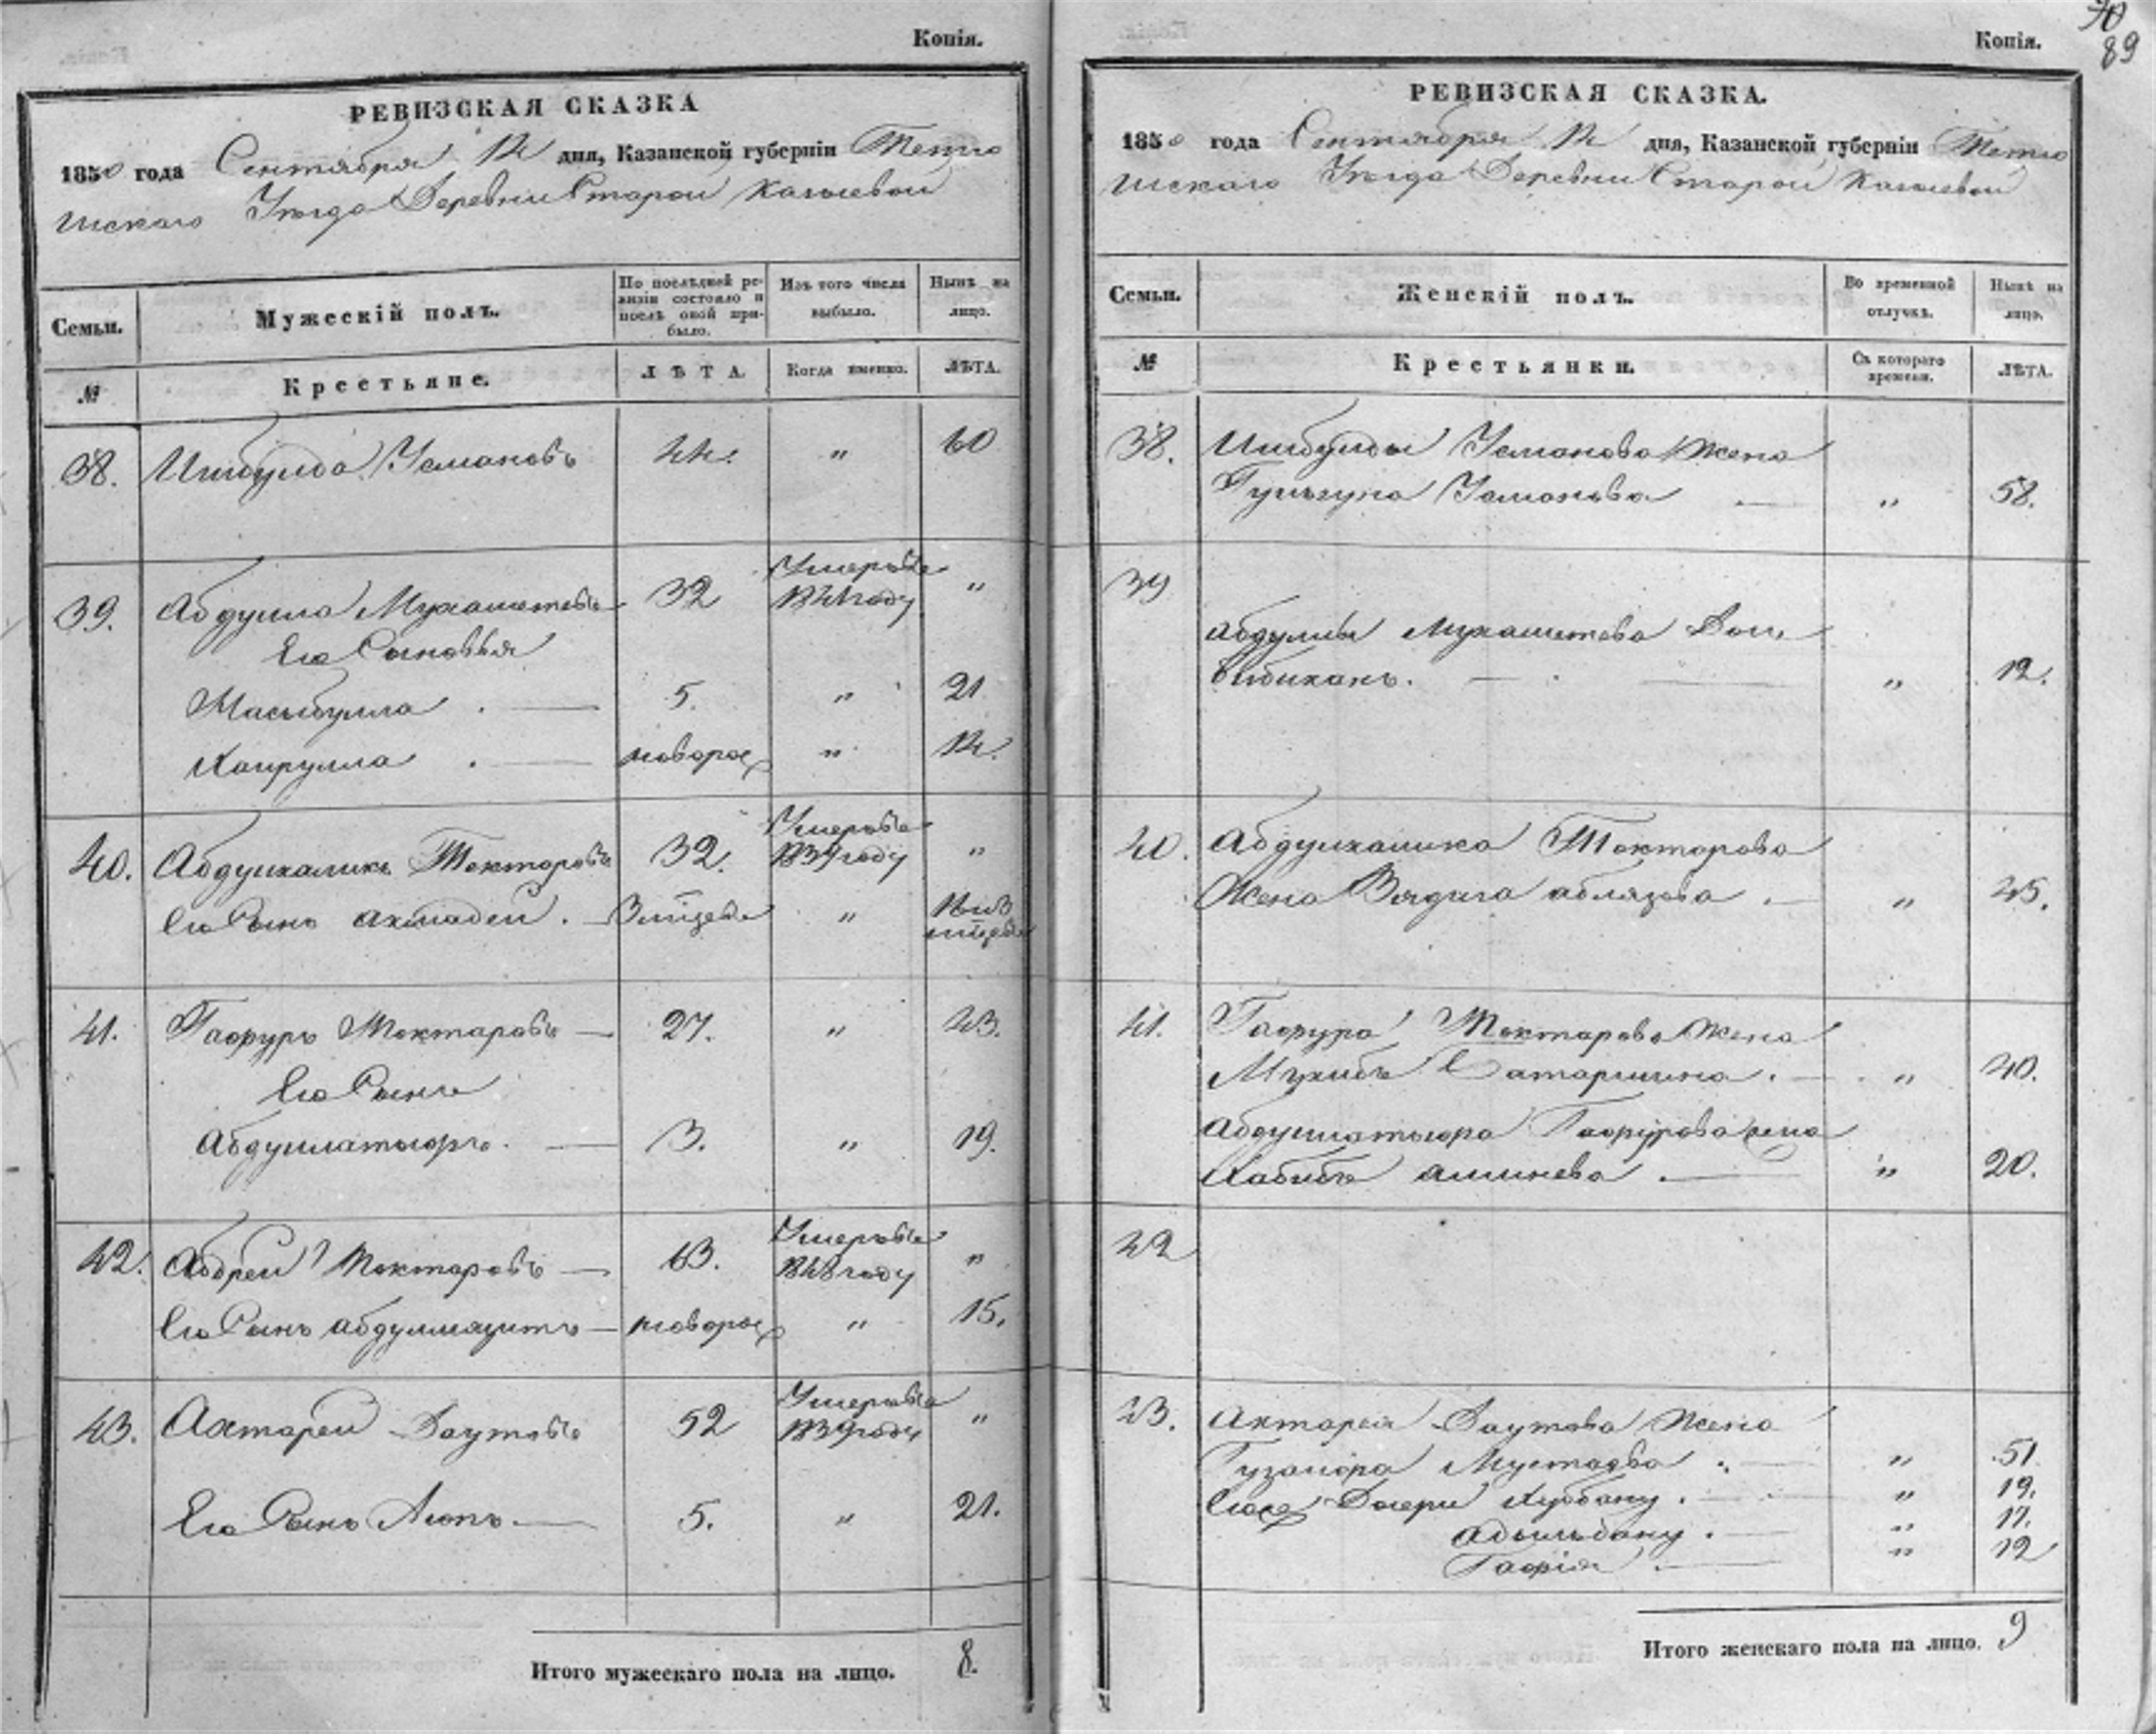 Копія.
РЕВИЗСКАЯ СКАЗКА
1850 года Сентября 14 дня, Казанской губерніи Тетю
шскаго Уѣзда Деревни Старой
Семьи.
Мужескій полъ.
По послѣдней ре-
визіи состояло и
послѣ оной при-
было.
Изъ того числа
выбыло.
Нынѣ на
лицо.
№
Крестьяне.
ЛѢТА.
Когда именно.
ЛѢТА.
38. Ишбулда Усмановъ 44. " 60
39. Абдулла Мухаметевъ 32 Умеръ въ 1841 году "
Его Сыновья
5. " 21
Хаирулла . — новорож " 14.
40. Абдулхаликъ Токтаровъ 32. Умеръ въ 1839 году "
Его Сынъ Ахмадей . —
41. Гафуръ Токтаровъ — 27. " 43.
Его Сынъ
Абдуллатыфъ . — 3. " 19.
42. Абдрей Токтаровъ — 63. Умеръ въ 1848 году "
Его Сынъ — новорож " 15.
43. Ахтарей Даутовъ 52 Умеръ въ 1839 году "
Его Сынъ Аюпъ . — 5. " 21.
Итого мужескаго пола на лицо. 8.
90
89
Копія.
РЕВИЗСКАЯ СКАЗКА.
1850 года Сентября 14 дня, Казанской губерніи Тетю
шскаго Уѣзда Деревни Старой
Семьи.
Женскій полъ.
Во временной
отлучкѣ.
Нынѣ на
лицо.
№
Крестьянки.
Съ котораго
времени.
ЛѢТА.
38. Ишбулды Усманова Жена
Усманова — " 58.
39
Абдуллы Мухаметева Дочь
Бибихань . — " 12.
40. Абдулхалика Токтарова
Жена — " 45.
41. Гафура Токтарова Жена
Мухибъ . — " 40.
Абдуллатыфа Гафурова жена
Хабибъ . — " 20.
42
43. Ахтарея Даутова Жена
. — " 51
Дочери . — " 19.
. — " 17.
Гафія — " 12
Итого женскаго пола на лицо. 9